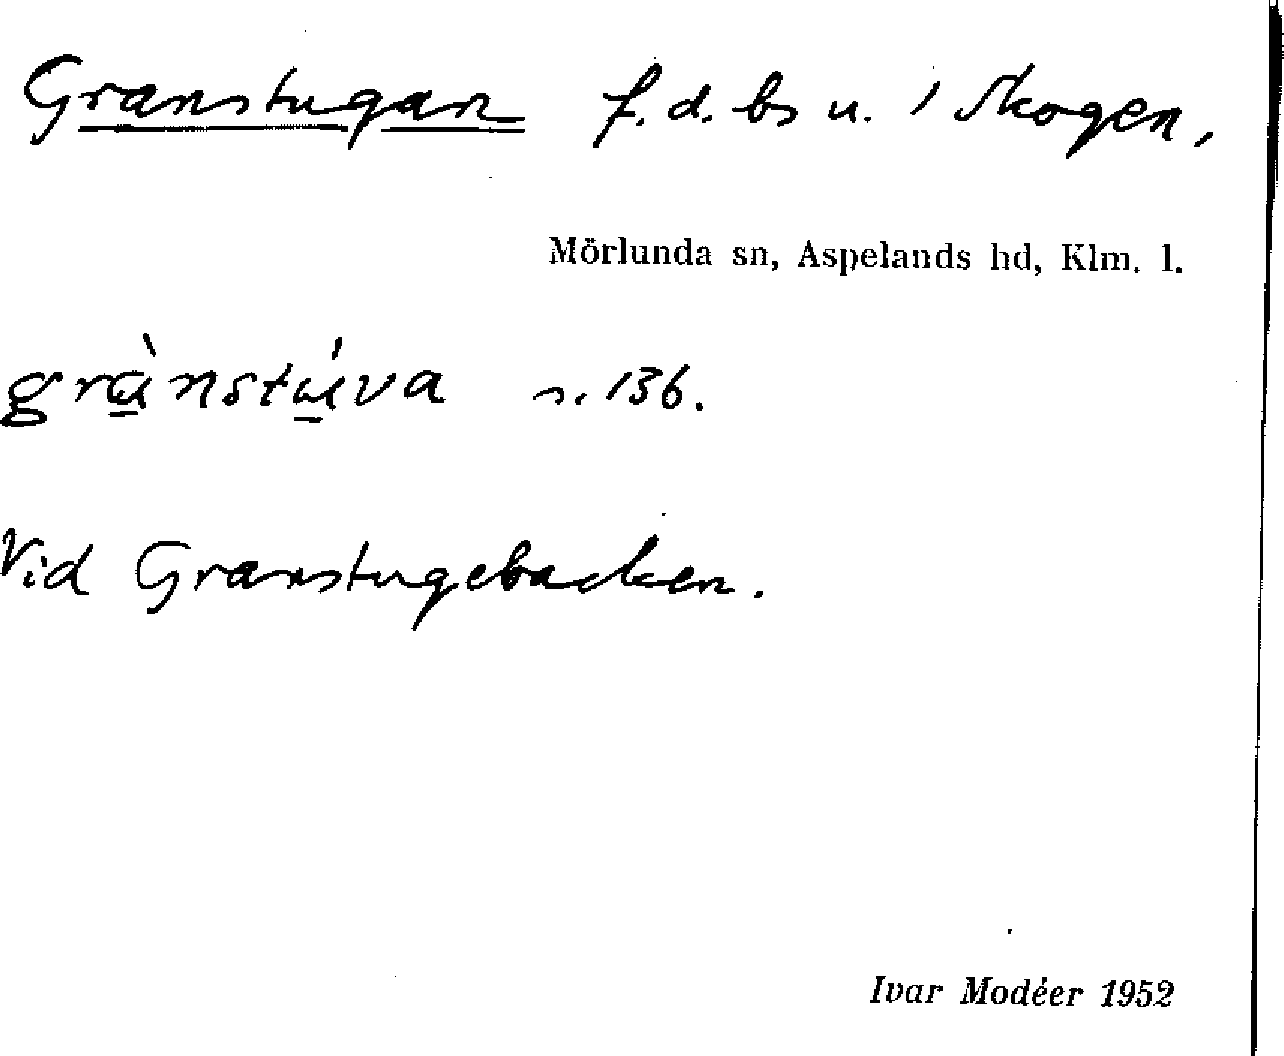 Granstugan f.d. bs u. 1 Skogen,
Mörlunda sn, Aspelands hd, Klm. l.
grànstúva s. 136.
Vid Granstugebacken.
Ivar Modéer 1952